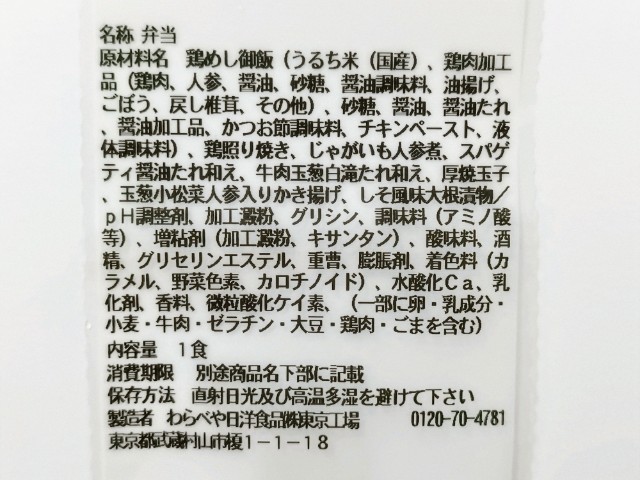 名称 弁当
原材料名 鶏めし御飯（うるち米（国産）、鶏肉加工
品（鶏肉、人参、醤油、砂糖、醤油調味料、油揚げ、
ごぼう、戻し椎茸、その他）、砂糖、醤油、醤油たれ
、醤油加工品、かつお節調味料、チキンペースト、液
体調味料）、鶏照り焼き、じゃがいも人参煮、スパゲ
ティ醤油たれ和え、牛肉玉葱白滝たれ和え、厚焼玉子
、玉葱小松菜人参入りかき揚げ、しそ風味大根漬物／
ｐＨ調整剤、加工澱粉、グリシン、調味料（アミノ酸
等）、増粘剤（加工澱粉、キサンタン）、酸味料、酒
精、グリセリンエステル、重曹、膨脹剤、着色料（カ
ラメル、野菜色素、カロチノイド）、水酸化Ｃａ、乳
化剤、香料、微粒酸化ケイ素、（一部に卵・乳成分・
小麦・牛肉・ゼラチン・大豆・鶏肉・ごまを含む）
内容量 １食
消費期限 別途商品名下部に記載
保存方法 直射日光及び高温多湿を避けて下さい
製造者 わらべや日洋食品㈱東京工場 0120-70-4781
東京都武蔵村山市榎１－１－１８